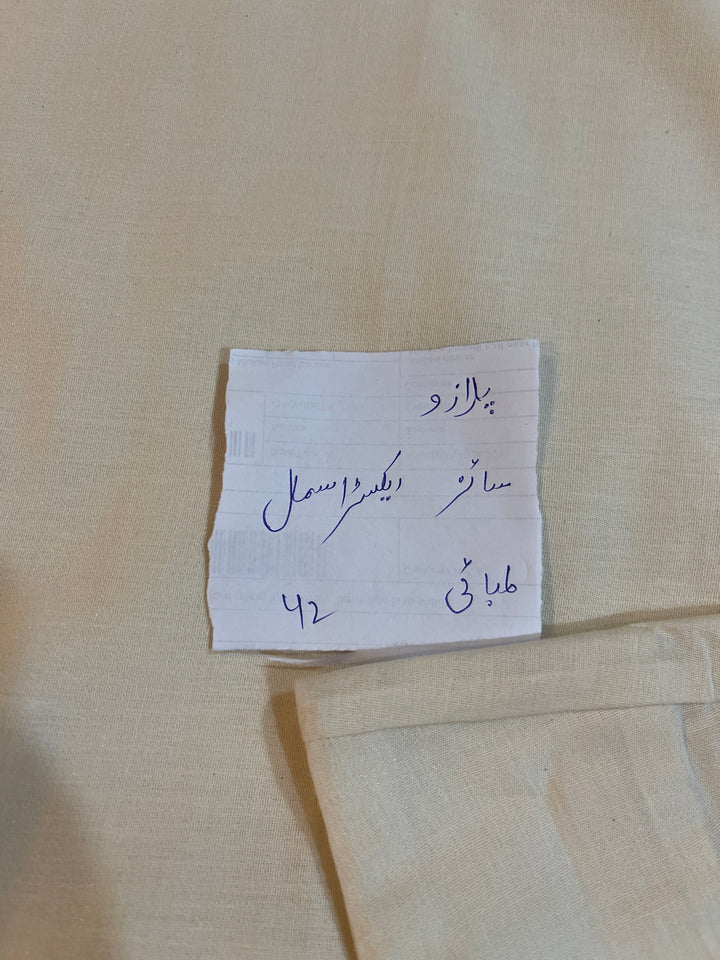 پلازو
سائز ایکسٹرا سمال
لمبائی 42